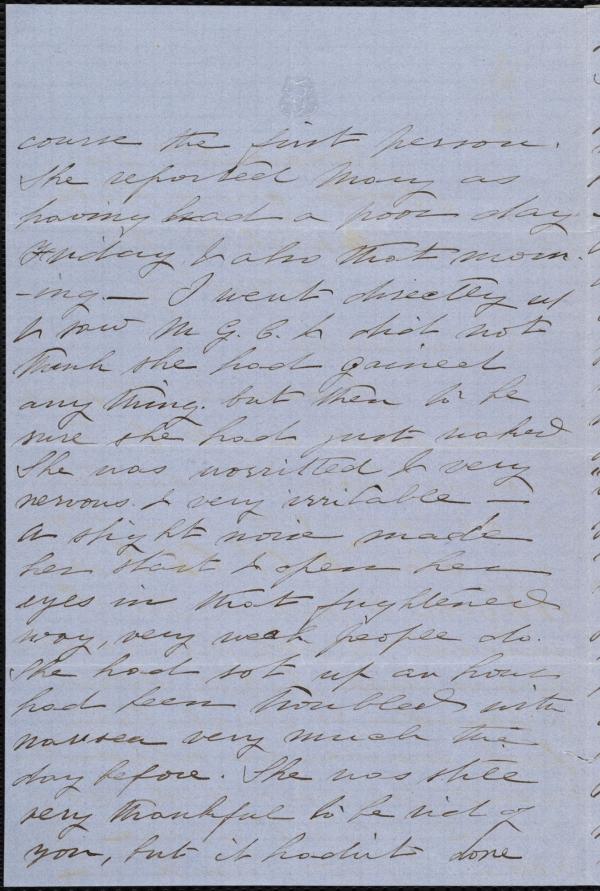 course the first person.
She reported Mary as
having had a poor day
Friday & also that morn-
-ing — I went directly up
& saw M. G. C. & did not
think she had gained
any thing. but then to be
sure she had just waked
She was worritted & very
nervous. & very irritable —
A slight noise made
her start & open her
eyes in that frightened
way, very weak people do.
She had sot up an hour
had been troubled with
nausea very much the
day before. She was still
very thankful to be rid of
you, but it hadn't done